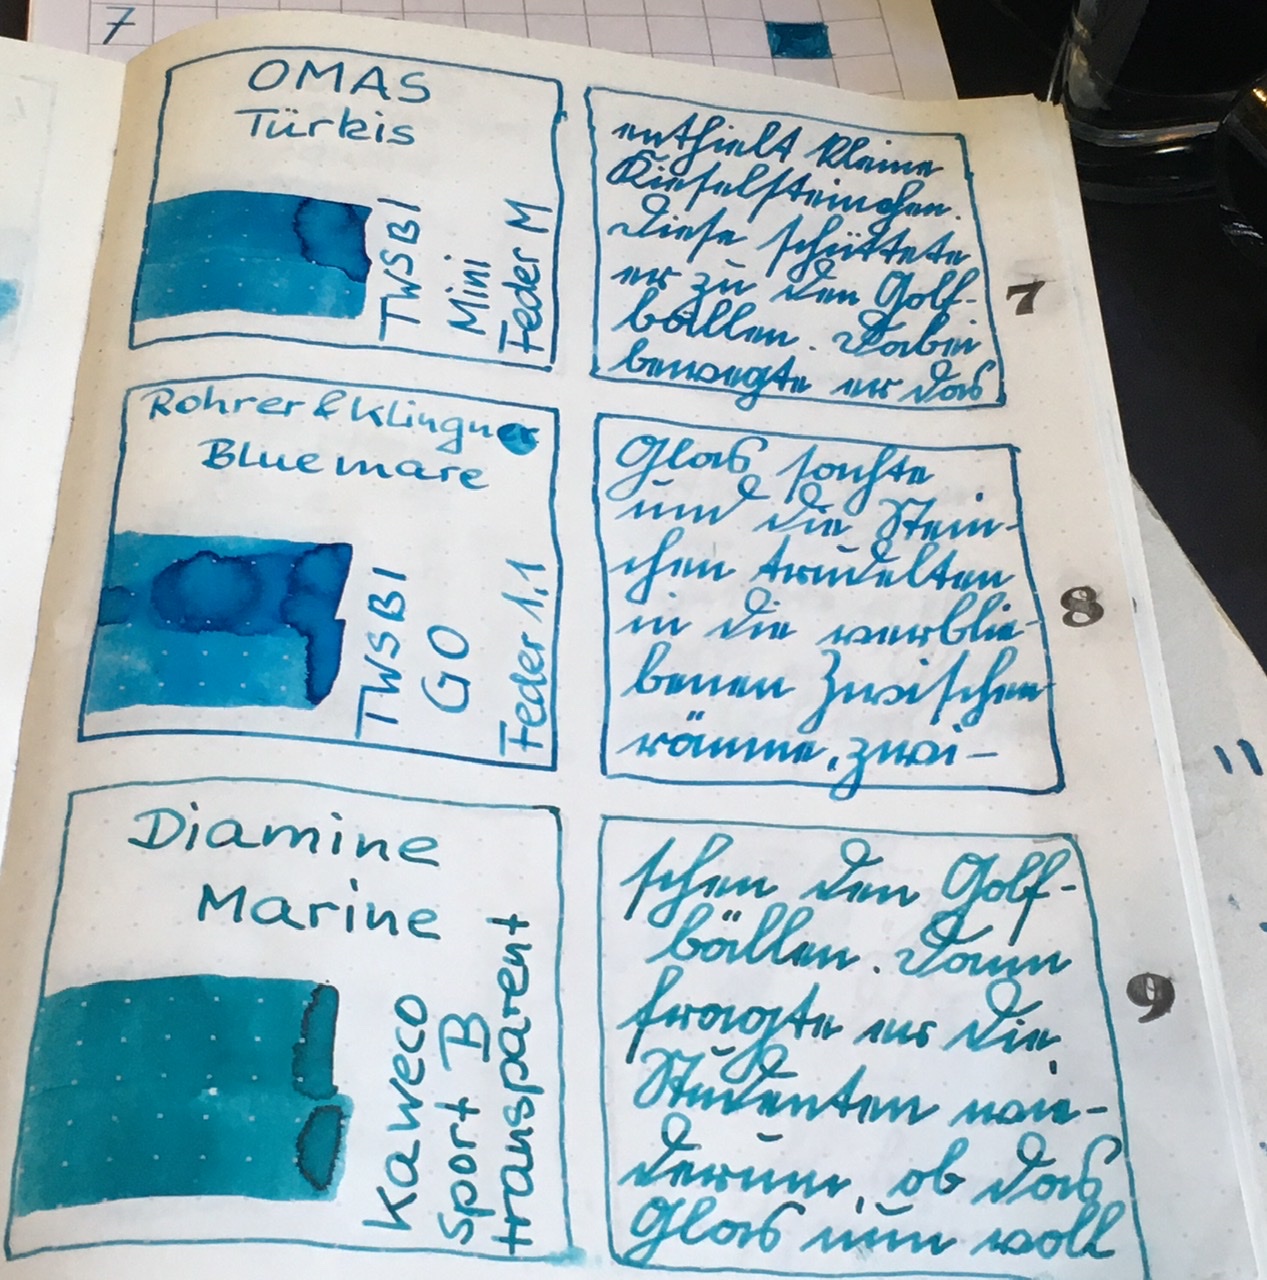 7
OMAS
Türkis
TWSBI
Mini
Feder M
enthielt kleine
Kieselsteinchen.
Diese schüttete
er zu den Golf-
bällen. Dabei
bewegte er das
7
Rohrer & Klingner
Blue mare
TWSBI
GO
Feder 1,1
Glas sachte
und die Stein-
chen trudelten
in die verblie-
benen Zwischen
räume, zwi-
8
Diamine
Marine
Kaweco
Sport B
transparent
schen den Golf-
bällen. Dann
fragte er die
Studenten wie-
derum, ob das
Glas nun voll
9
11